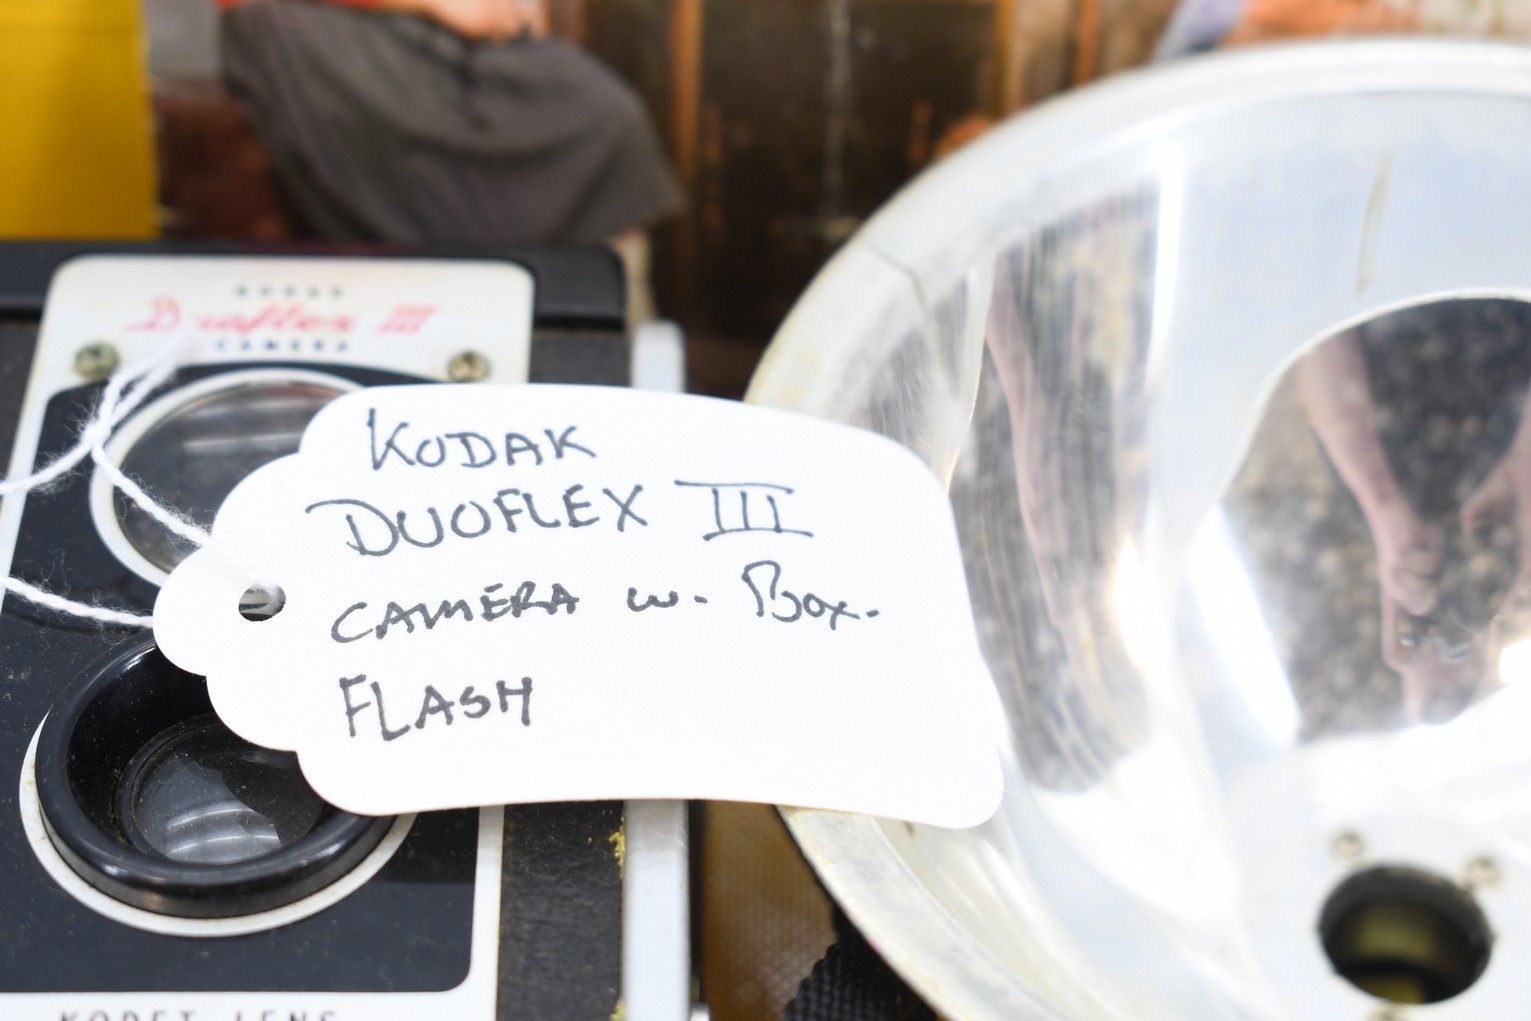 KODAK
Duaflex III
CAMERA
KODAK
DUOFLEX III
CAMERA w. Box.
FLASH
KODET LENS